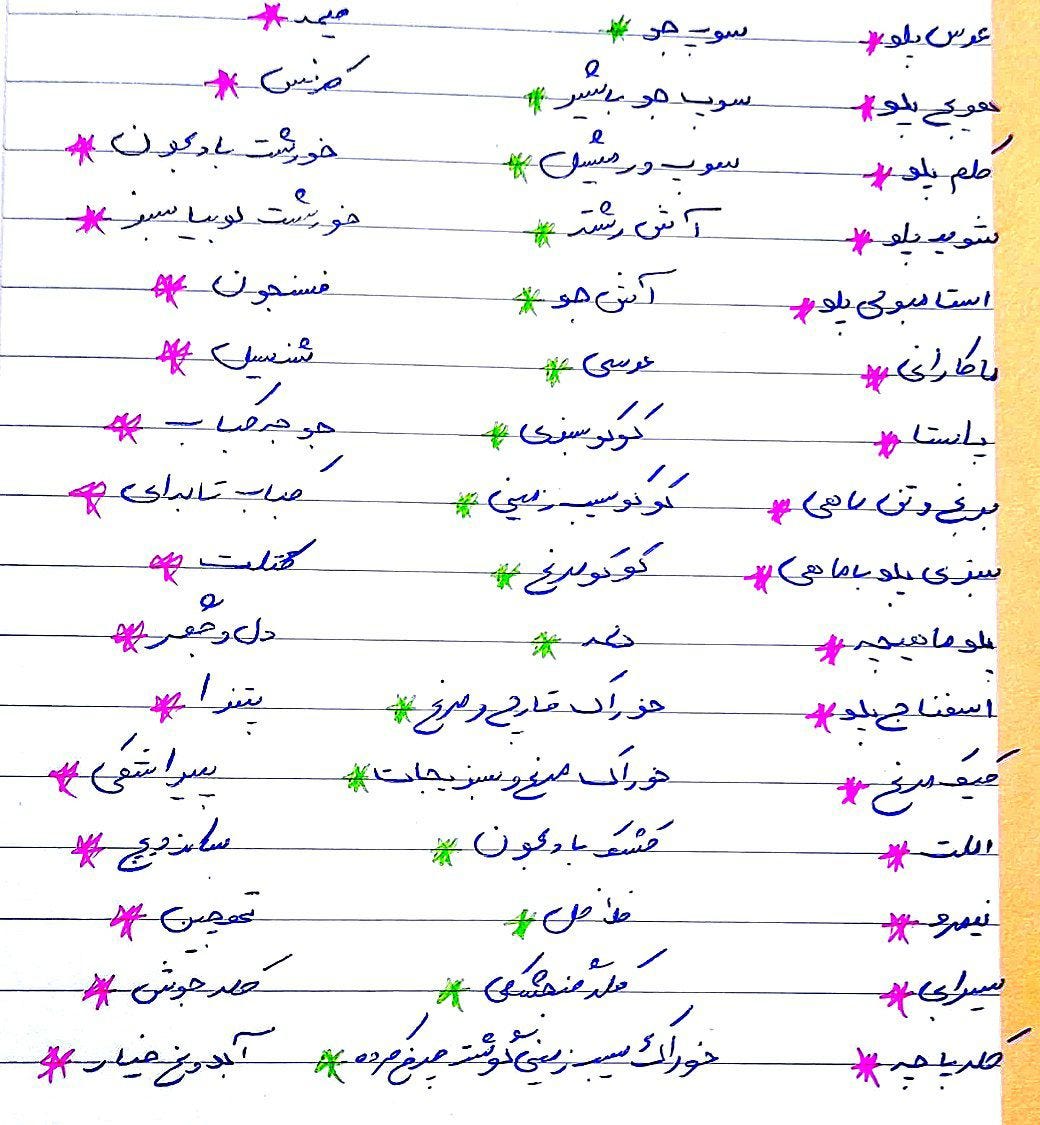 عدس پلو * سوپ جو * قیمه *
هویج پلو * سوپ جو با شیر * کرفس *
کلم پلو * سوپ ورمیشل * خورشت بادمجون *
شوید پلو * آش رشته * خورشت لوبیا سبز *
استامبولی پلو * آش جو * فسنجون *
ماکارانی * عدسی * شنیسل *
پاستا * کوکو سبزی * جوجه کباب *
مرغ و تن ماهی * کوکو سیب زمینی * کباب تابه‌ای *
سبزی پلو با ماهی * کوکو مرغ * کتلت *
پلو ماهیچه * * دل و جگر *
اسفناج پلو * خوراک قارچ و مرغ * پیتزا *
کیک مرغ * خوراک مرغ و سبزیجات * پیراشکی *
املت * کشک بادمجون * ساندویچ *
نیمرو * فلافل * ته‌چین *
سیرابی * کله گنجشکی * کله جوش *
کله پاچه * خوراک سیب زمینی گوشت چرخ کرده * آبدوغ خیار *